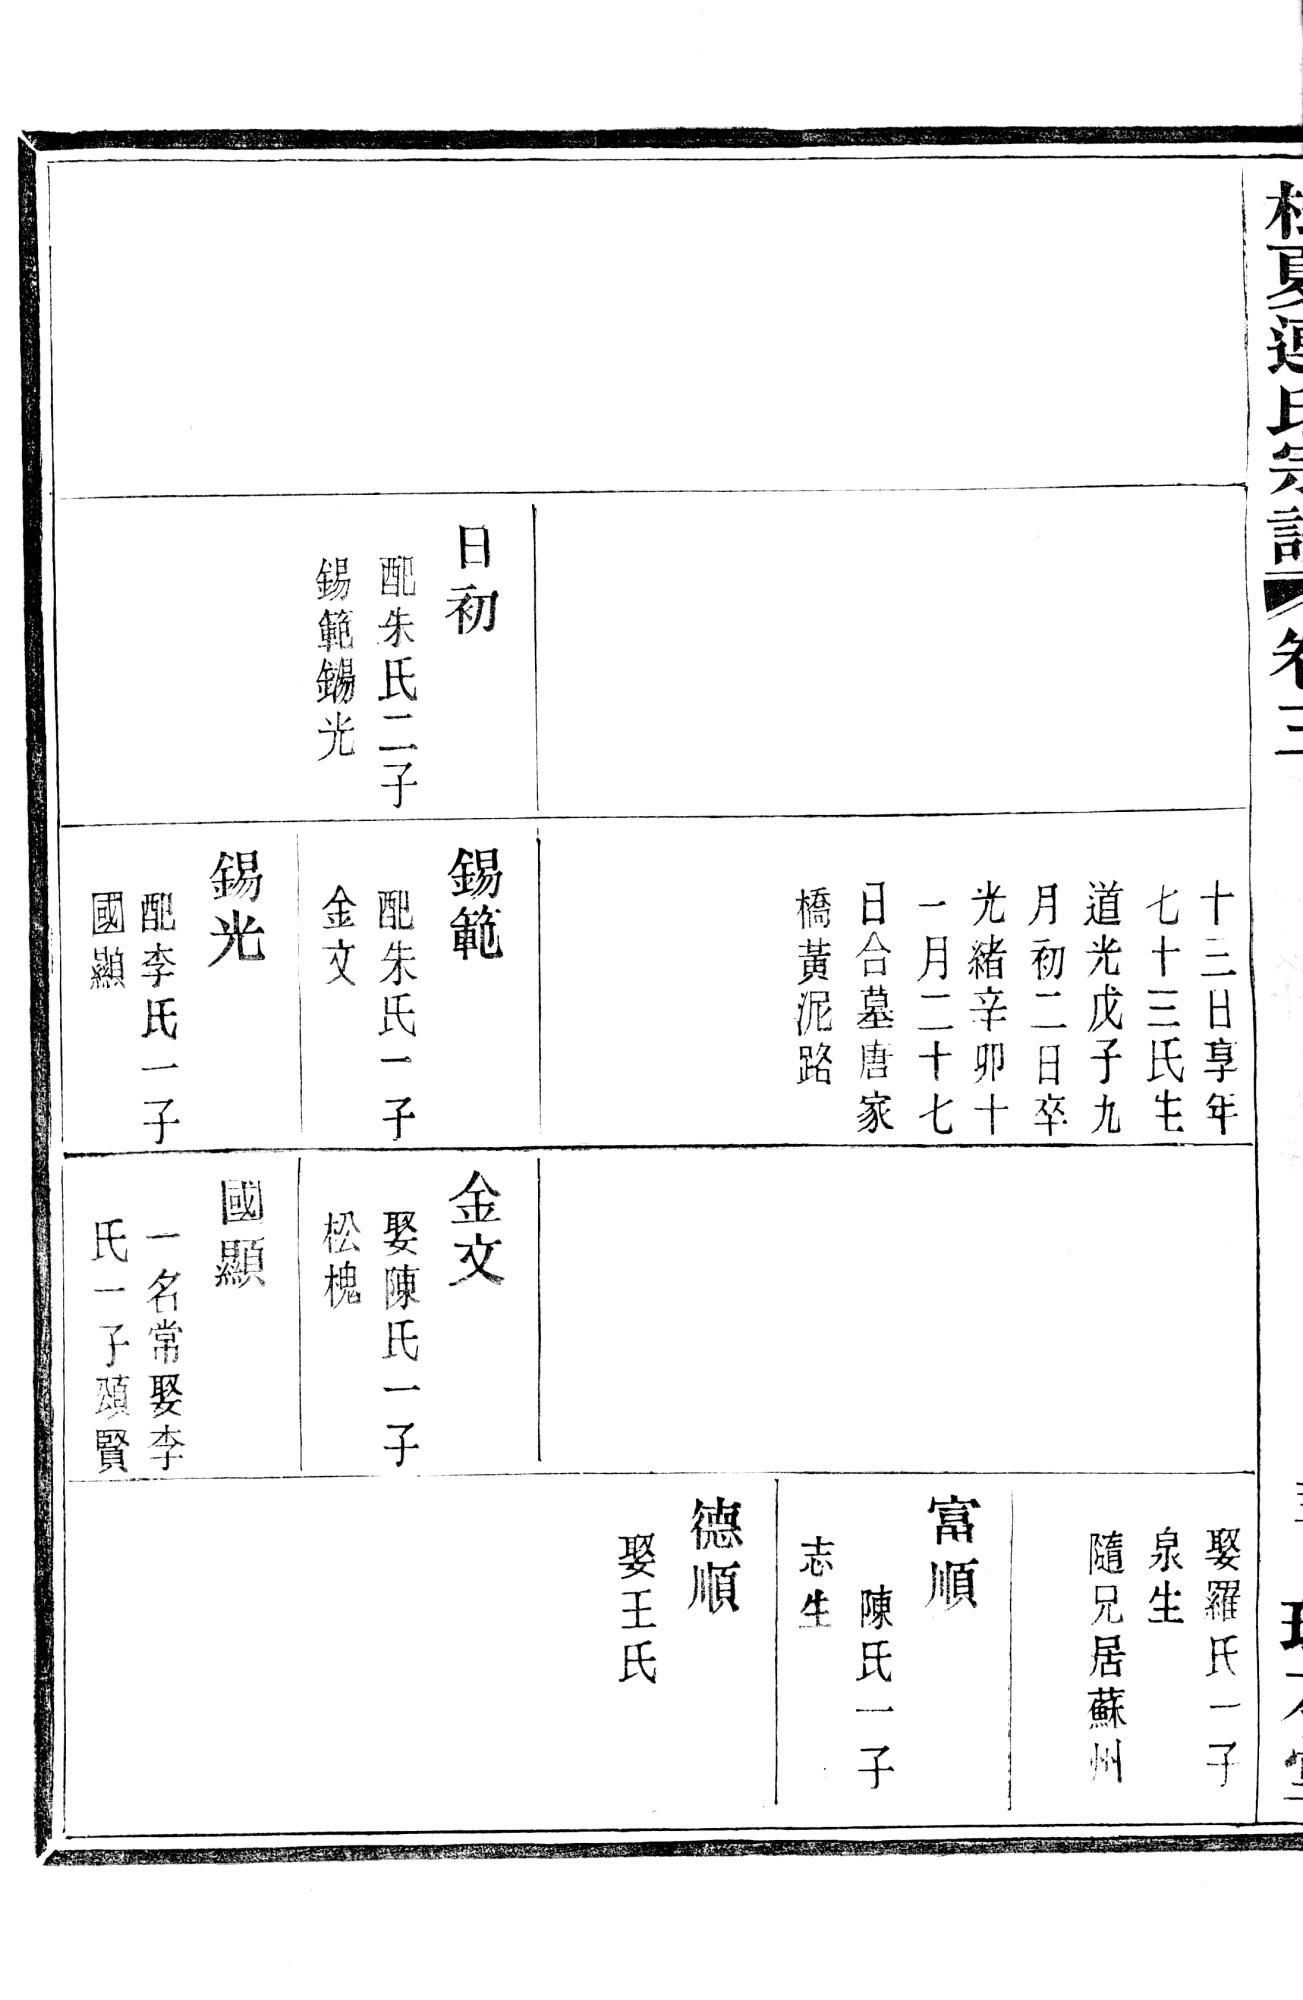 夏連氏宗譜
卷三
日初
配朱氏二子
錫範錫光
十三日享年
七十三氏生
道光戊子九
月初二日卒
光緒辛卯十
一月二十七
日合墓唐家
橋黃泥路
錫範
配朱氏一子
金文
錫光
配李氏一子
國顯
金文
娶陳氏一子
松槐
國顯
一名常娶李
氏一子頌賢
娶羅氏一子
泉生
隨兄居蘇州
富順
陳氏一子
志生
德順
娶王氏